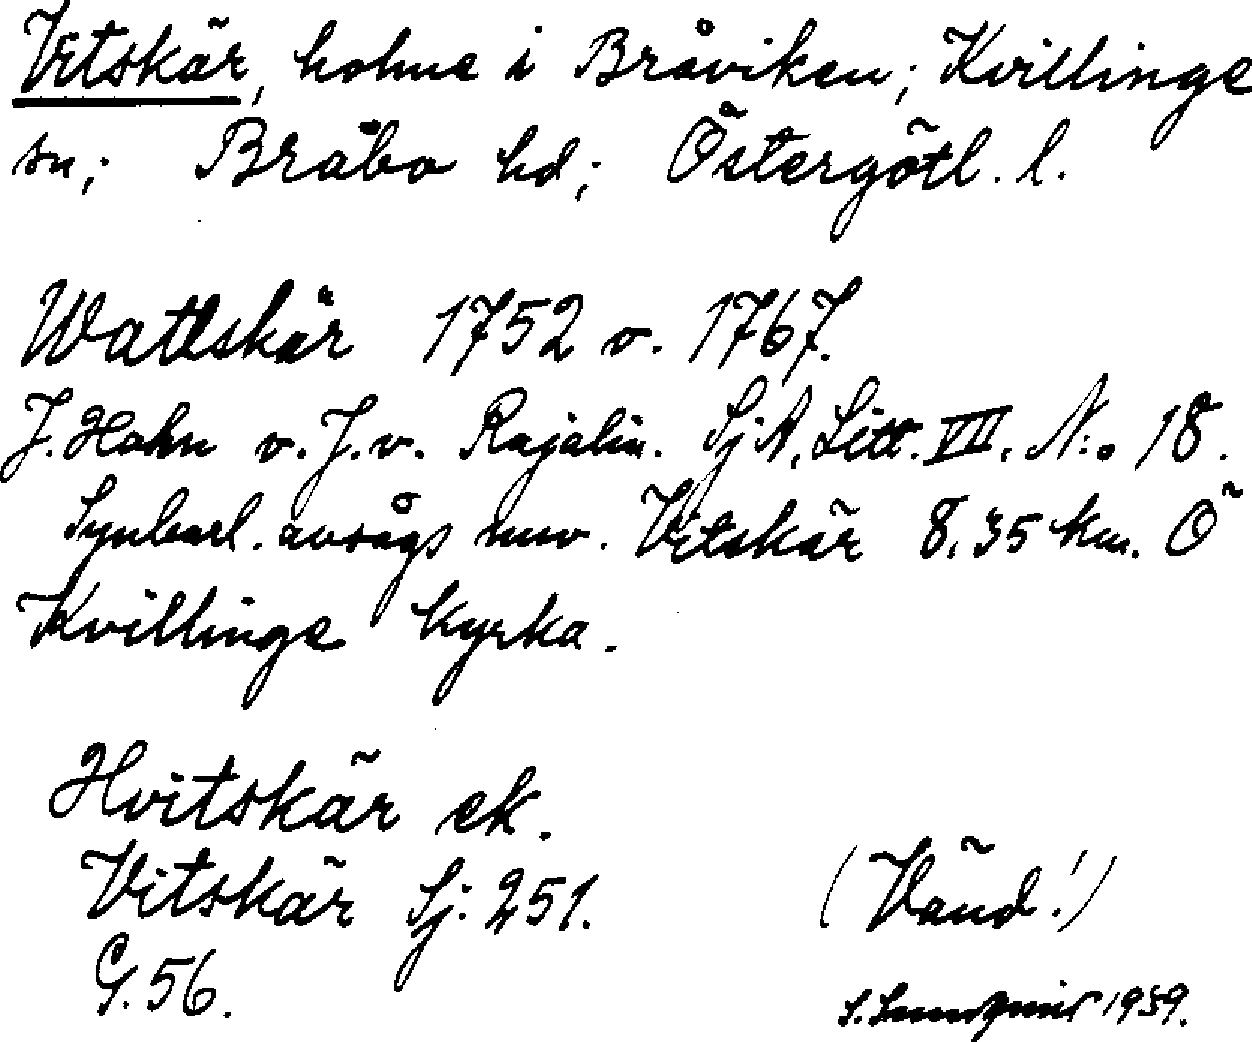 Vitskär, holme i Bråviken; Kvillinge
sn; Bråbo hd; Östergötl. l.
Wattskär 1752 o. 1767.
J. Hahn o. J. v. Rajalin. SjA, Litt. VII. N:o 18.
Synbarl. avsågs nuv. Vitskär 8,35 km. Ö
Kvillinge kyrka.
Hvitskär ek.
Vitskär Sj. 251.
G. 56.
(Vänd!)
S. 1939.